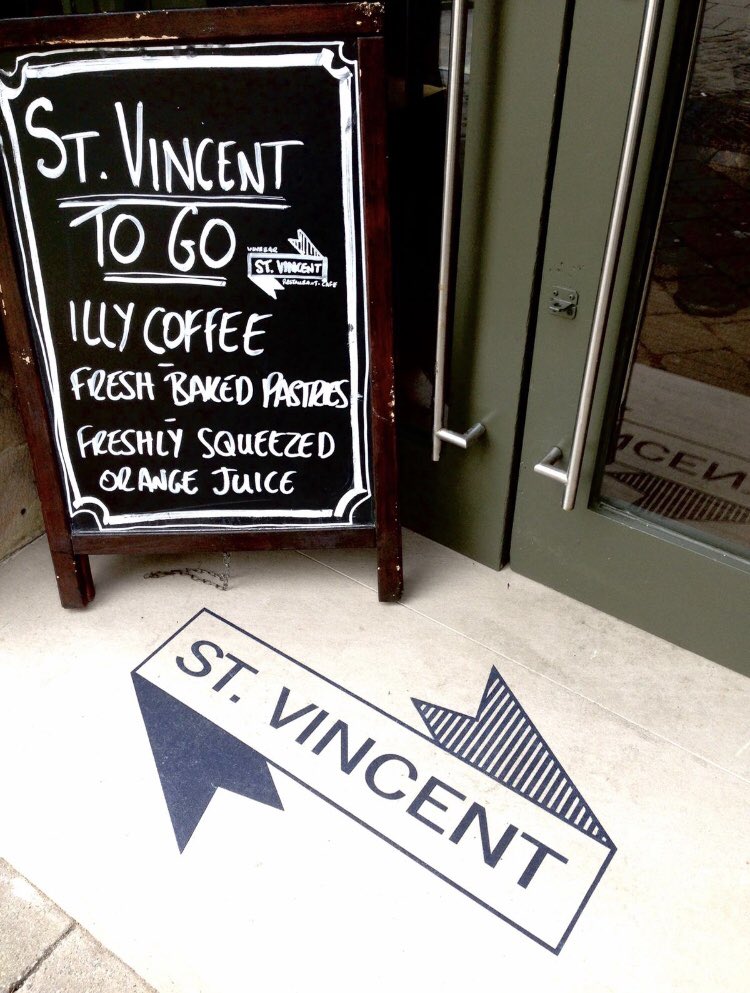 ST. VINCENT
TO GO
WINE BAR
ST. VINCENT
RESTAURANT. CAFE
ILLY COFFEE
-
FRESH BAKED PASTRIES
-
FRESHLY SQUEEZED
ORANGE JUICE
ST. VINCENT